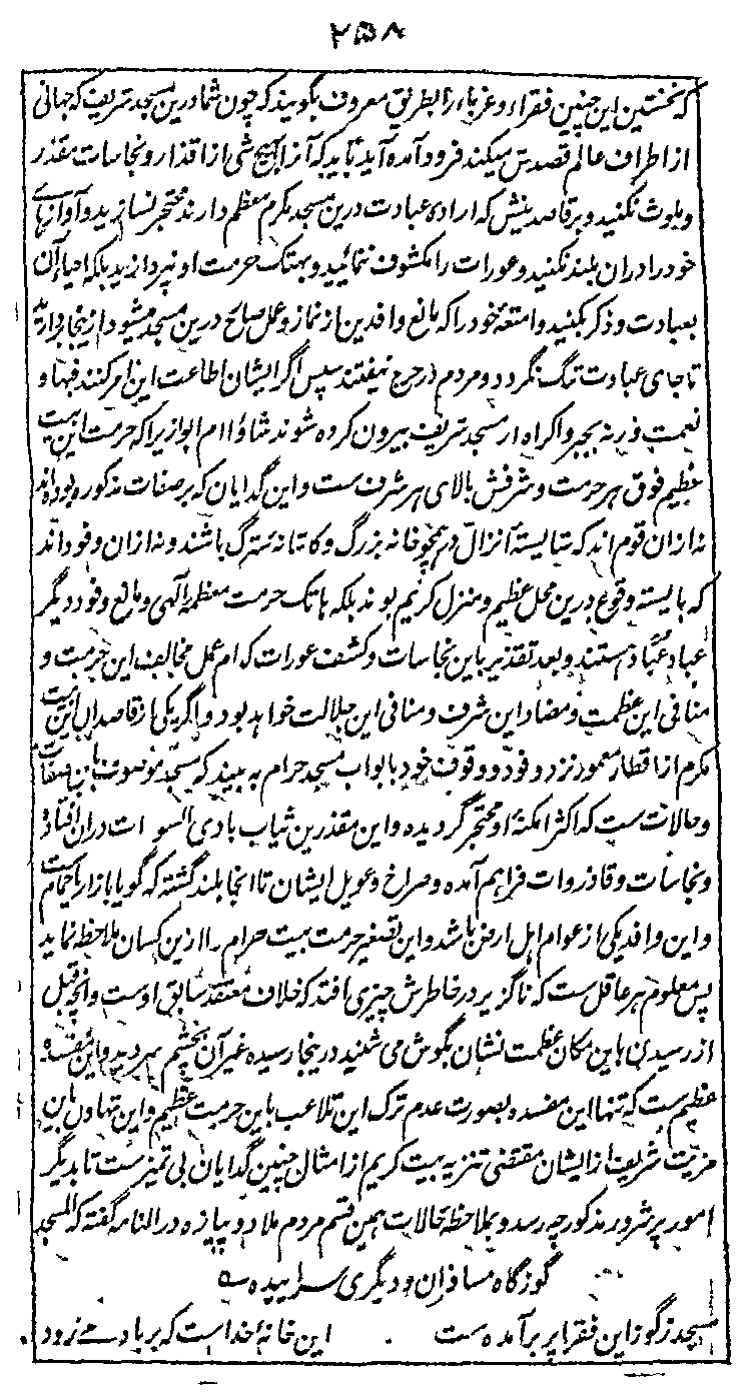 ۲۵۸
که نخستین این چنین فقراء و غرباء را بطریق معروف بگویند که چون شما درین مسجد شریف که جهانی
از اطراف عالم قصدش میکند فرود آمده آید باید که آنرا بهیچ شی از اقذار و نجاسات مقذر
و ملوث نکنید و برقاصدینش که ارادی عبادت درین مسجد مکرم معظم دارند محتجر نسازید و آوازهای
خود را دران بلند نکنید و عورات را مکشوف ننمائید و بهتک حرمت او نپردازید بلکه احیاء آن
بعبادت و ذکر بکنید و امتعهٔ خود را که مانع وافدین از نماز و عمل صالح درین مسجد میشود ازینجا بردارید
تا جای عبادت تنگ نگردد و مردم در حرج نیفتند سپس اگر ایشان اطاعت این امر کنند فبها و
نعمت ورنه بجبر و اکراه از مسجد شریف بیرون کرده شوند شاؤا ام ابوا زیرا که حرمت این بیت
عظیم فوق هر حرمت و شرفش بالای هر شرف ست و این گدایان که بر صفات مذکوره بوده اند
نه ازان قوم اند که شایستهٔ انزال در همچو خانه بزرگ و کاشانه سترگ باشند و نه ازان وفود اند
که بایسته وقوع درین محل عظیم و منزل کریم بوند بلکه هاتک حرمت معظمه الهی و مانع وفود دیگر
عباد عُبّاد هستند و بعد تقذیر باین نجاسات و کشف عورات کدام عمل مخالف این حرمت و
منافی این عظمت و مضاد این شرف و منافی این جلالت خواهد بود و اگر یکی از قاصدان این بیت
مکرم از اقطار معمور نزد وفود و وقوف خود بابواب مسجد حرام به بیند که مسجد موصوف باین صفات
و حالات ست که اکثر امکنهٔ او محتجر گردیده و این مقذرین ثیاب بادی السوات دران افتاده
و نجاسات و قاذورات فراهم آمده و صراخ و عویل ایشان تا انجا بلند گشته که گویا بازار یا حمام ست
و این وافد یکی از عوام اهل ارض باشد و این تصغیر حرمت بیت حرام را ازین کسان ملاحظه نماید
پس معلوم هر عاقل ست که ناگزیر در خاطرش چیزی افتد که خلاف معتقد سابق اوست و انچه قبل
از رسیدن باین مکان عظمت نشان بگوش می شنید درینجا رسیده غیر آن بچشم دید و این مفسده
عظیم ست که تنها این مفسده بصورت عدم ترک این تلاعب باین حرمت عظیم و این تهاون باین
مزیت شریف از ایشان مقتضی تنزیه بیت کریم از امثال چنین گدایان بی تمیز ست تا بدیگر
امور پر شرور مذکور چه رسد و بملاحظه حالات همین قسم مردم ملا دو پیازه در النامه گفته که المسجد
گوزگاه مسافران و دیگری سراییده
مسجد ز گوز این فقرا پر برآمده ست این خانهٔ خداست که بر باد مے رود